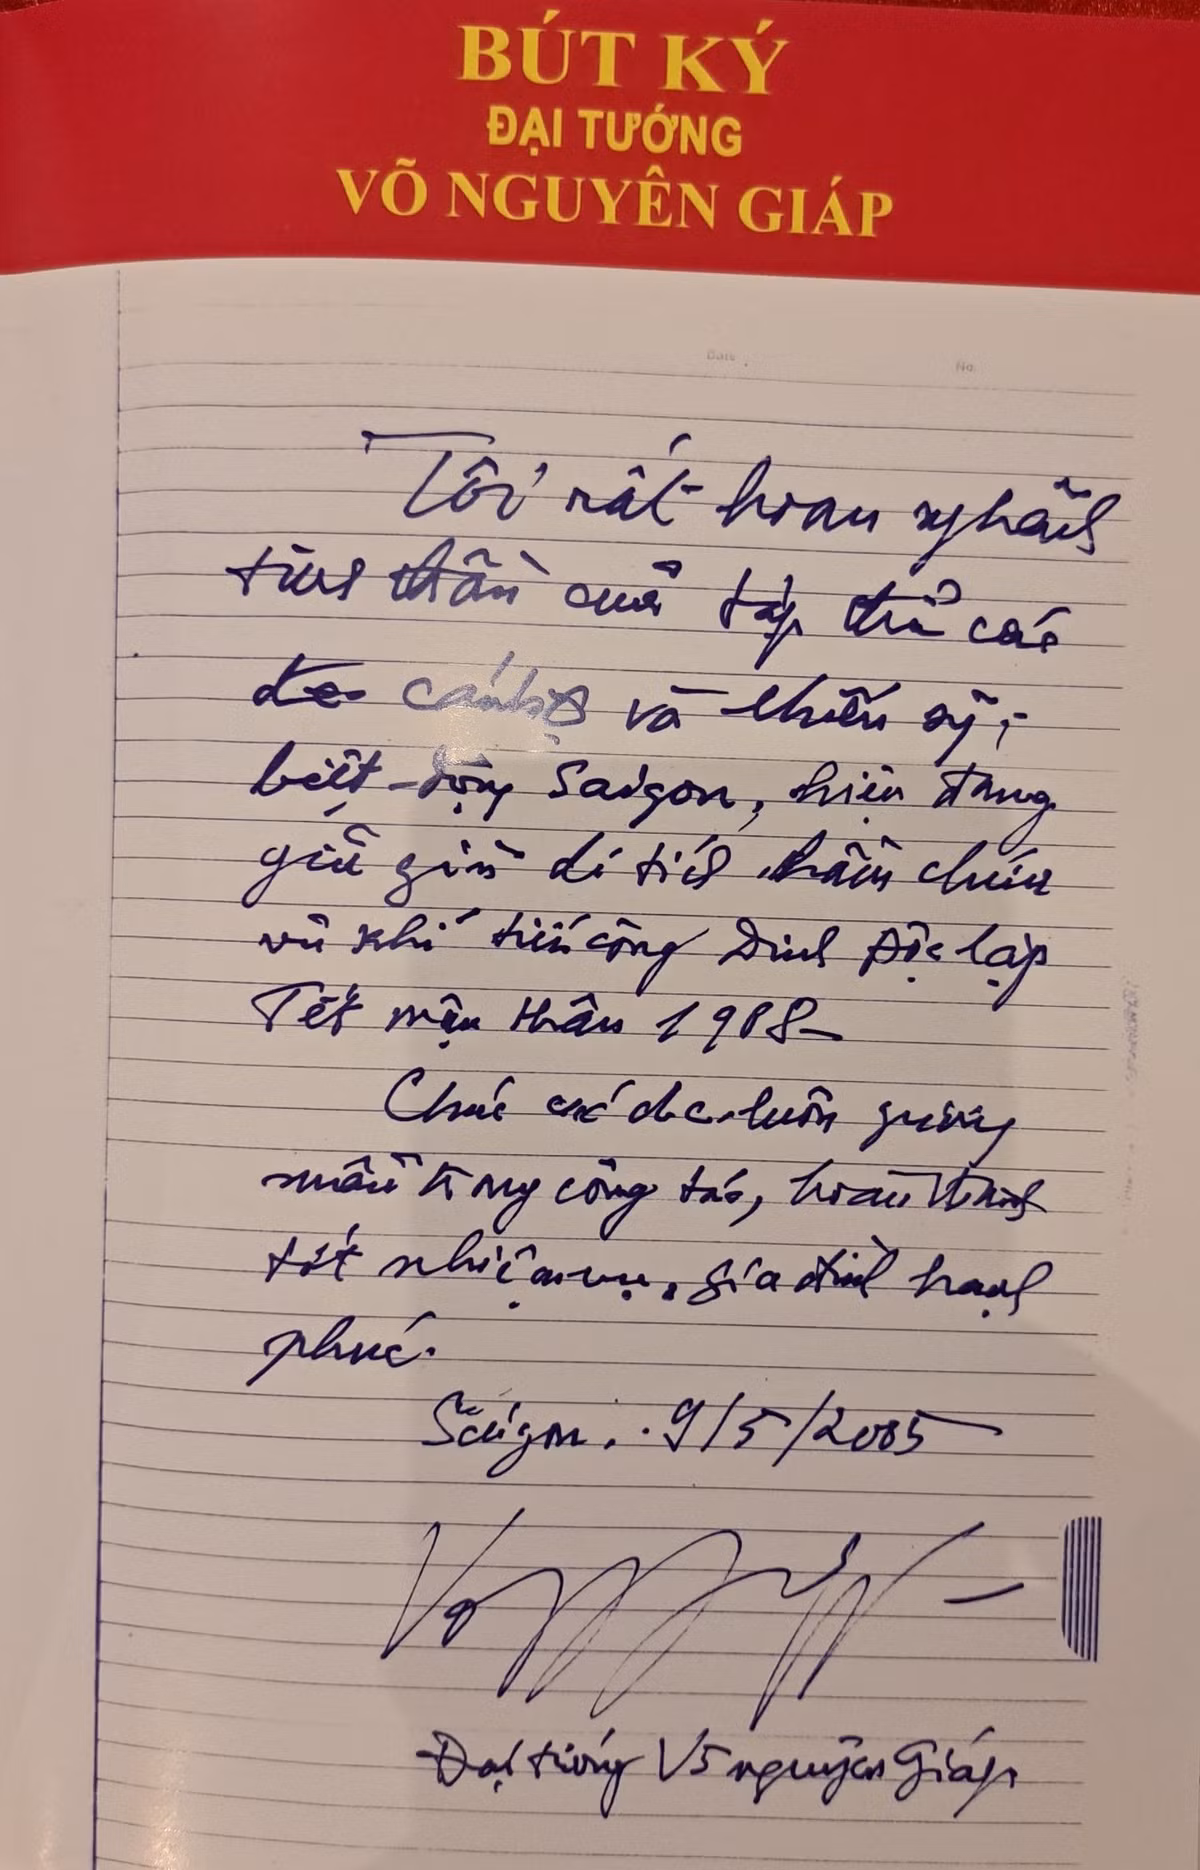 BÚT KÝ
ĐẠI TƯỚNG
VÕ NGUYÊN GIÁP
Date .
No.
Tôi rất hoan nghênh
tinh thần của tập thể các
đ/c cán bộ và chiến sỹ,
biệt động Saigon, hiện đang
giữ gìn di tích hầm chứa
vũ khí tiến công Dinh Độc lập
Tết mậu thân 1968
Chúc các đ/c luôn gương
mẫu trong công tác, hoàn thành
tốt nhiệm vụ, gia đình hạnh
phúc.
Sàigon, 9/5/2005
Đại tướng Võ nguyên Giáp